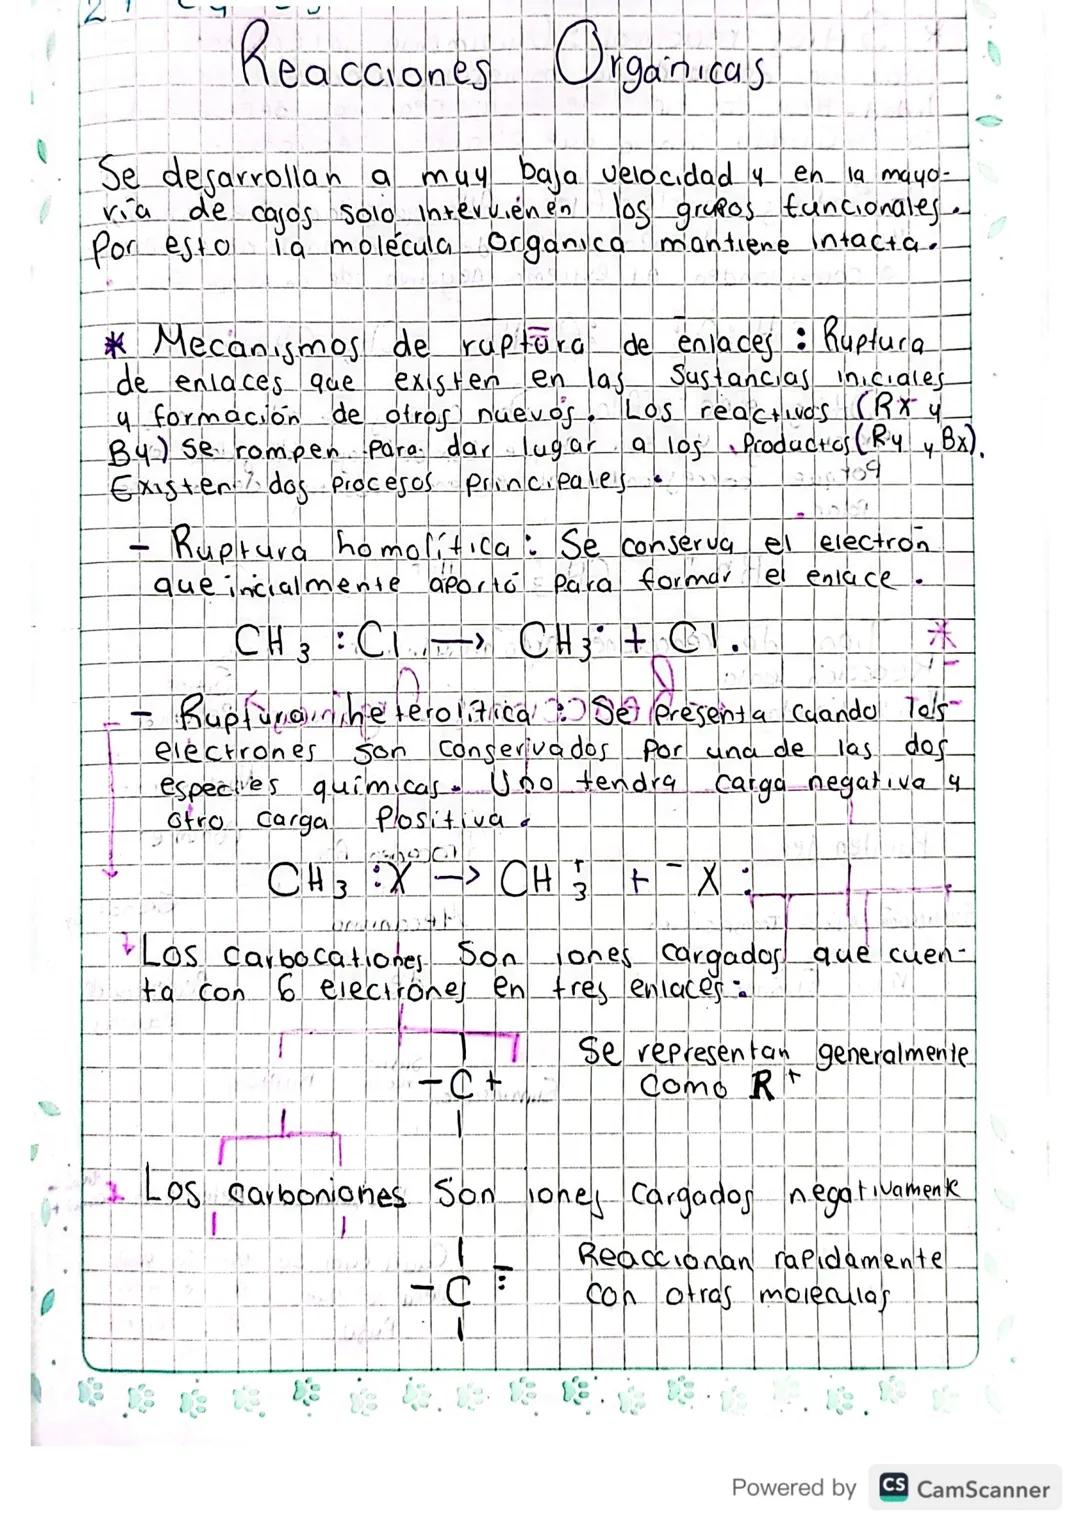 Reacciones Orgánicas
Se desarrollan a muy baja velocidad y en la mayo-
ría de casos solo intervienen los grupos funcionales.
Por esto la molécula Orgánica mantiene intacta.
* Mecanismos de ruptura de enlaces : Ruptura
de enlaces que existen en las Sustancias iniciales
y formación de otros nuevos. Los reactivos (RX y
By) se rompen para dar lugar a los Productos (Ry y Bx).
Existen dos procesos principales.
- Ruptura homolítica : Se conserva el electrón
que incialmente aportó para formar el enlace.
CH3 : Cl → CH3· + Cl.
*
- Ruptura heterolítica : Se presenta cuando los
electrones son conservados por una de las dos
especies químicas. Uno tendra carga negativa y
otro carga Positiva.
CH3 :X → CH3+ + -X :
Los carbocationes Son iones cargados que cuen-
ta con 6 electrones en tres enlaces :
Se representan generalmente
- C +
como R+
Los carboniones Son iones cargados negativamente
Reaccionan rapidamente
- C :-
con otras moleculas
Powered by CS CamScanner